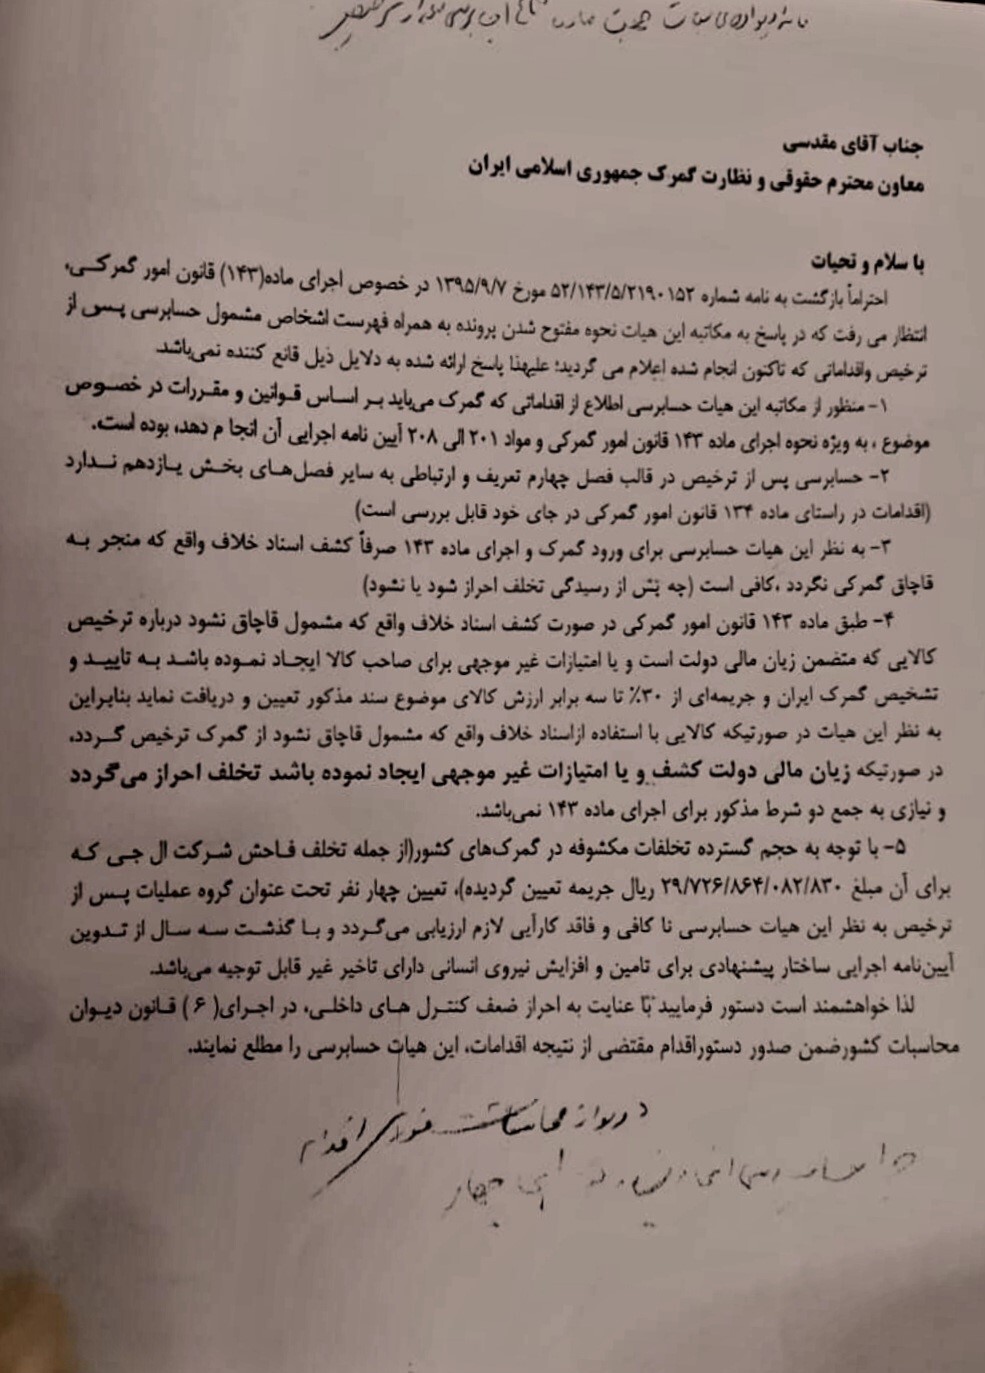 جناب آقای مقدسی
معاون محترم حقوقی و نظارت گمرک جمهوری اسلامی ایران
با سلام و تحیات
احتراماً بازگشت به نامه شماره ۵۲/۱۴۳/۵/۲۱۹۰۱۵۲ مورخ ۱۳۹۵/۹/۷ در خصوص اجرای ماده(۱۴۳) قانون امور گمرکی،
انتظار می رفت که در پاسخ به مکاتبه این هیات نحوه مفتوح شدن پرونده به همراه فهرست اشخاص مشمول حسابرسی پس از
ترخیص واقداماتی که تاکنون انجام شده اعلام می گردید؛ علیهذا پاسخ ارائه شده به دلایل ذیل قانع کننده نمی‌باشد.
۱- منظور از مکاتبه این هیات حسابرسی اطلاع از اقداماتی که گمرک می‌باید بر اساس قوانین و مقررات در خصوص
موضوع ، به ویژه نحوه اجرای ماده ۱۴۳ قانون امور گمرکی و مواد ۲۰۱ الی ۲۰۸ آیین نامه اجرایی آن انجا م دهد، بوده است.
۲- حسابرسی پس از ترخیص در قالب فصل چهارم تعریف و ارتباطی به سایر فصل‌های بخش یازدهم ندارد
(اقدامات در راستای ماده ۱۳۴ قانون امور گمرکی در جای خود قابل بررسی است)
۳- به نظر این هیات حسابرسی برای ورود گمرک و اجرای ماده ۱۴۳ صرفاً کشف اسناد خلاف واقع که منجر به
قاچاق گمرکی نگردد ،کافی است (چه پس از رسیدگی تخلف احراز شود یا نشود)
۴- طبق ماده ۱۴۳ قانون امور گمرکی در صورت کشف اسناد خلاف واقع که مشمول قاچاق نشود درباره ترخیص
کالایی که متضمن زیان مالی دولت است و یا امتیازات غیر موجهی برای صاحب کالا ایجاد نموده باشد به تایید و
تشخیص گمرک ایران و جریمه‌ای از ۳۰٪ تا سه برابر ارزش کالای موضوع سند مذکور تعیین و دریافت نماید بنابراین
به نظر این هیات در صورتیکه کالایی با استفاده ازاسناد خلاف واقع که مشمول قاچاق نشود از گمرک ترخیص گردد،
در صورتیکه زیان مالی دولت کشف و یا امتیازات غیر موجهی ایجاد نموده باشد تخلف احراز می‌گردد
و نیازی به جمع دو شرط مذکور برای اجرای ماده ۱۴۳ نمی‌باشد.
۵- با توجه به حجم گسترده تخلفات مکشوفه در گمرک‌های کشور(از جمله تخلف فاحش شرکت ال جی که
برای آن مبلغ ۲۹/۷۲۶/۸۶۴/۰۸۲/۸۳۰ ریال جریمه تعیین گردیده)، تعیین چهار نفر تحت عنوان گروه عملیات پس از
ترخیص به نظر این هیات حسابرسی نا کافی و فاقد کارآیی لازم ارزیابی می‌گردد و با گذشت سه سال از تدوین
آیین‌نامه اجرایی ساختار پیشنهادی برای تامین و افزایش نیروی انسانی دارای تاخیر غیر قابل توجیه می‌باشد.
لذا خواهشمند است دستور فرمایید با عنایت به احراز ضعف کنترل های داخلی، در اجرای( ۶ ) قانون دیوان
محاسبات کشورضمن صدور دستوراقدام مقتضی از نتیجه اقدامات، این هیات حسابرسی را مطلع نمایند.